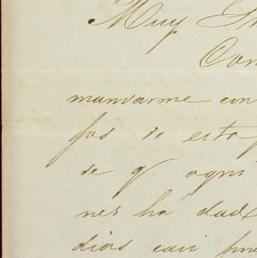 Muy
Con
mandarme con
de esta
de q. aqui
nes ha dad
dias casi